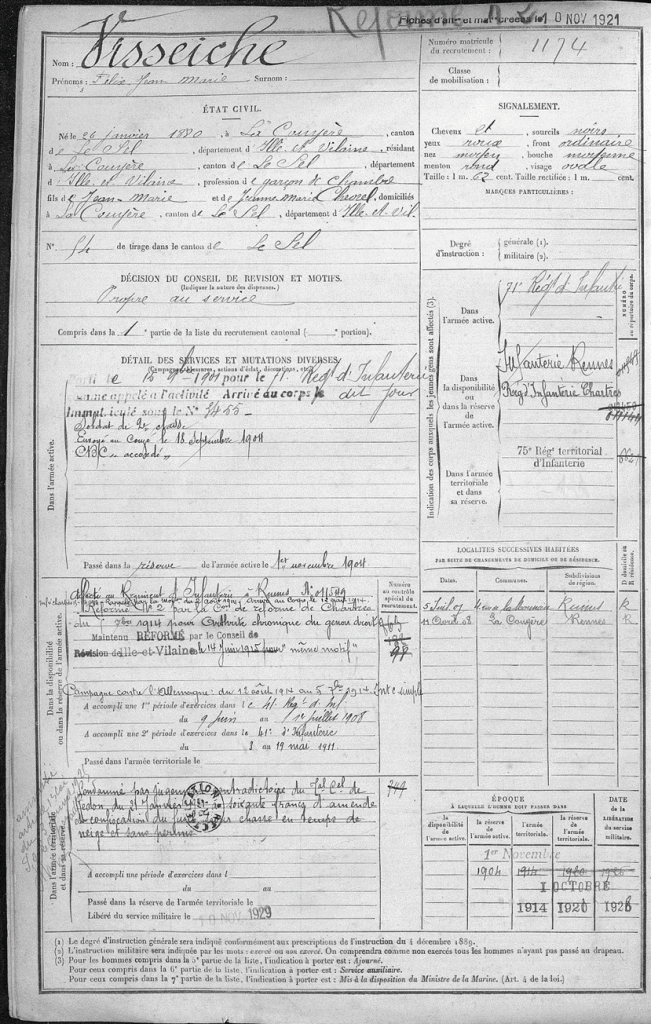 Fiches d'aff et mat creées le 10 NOV 1921
Réforme N° 2
Nom : Visseiche
Prénoms : Félix Jean Marie Surnom :
Numéro matricule du recrutement : 1174
Classe de mobilisation :
ÉTAT CIVIL.
Né le 26 janvier 1880, à La Couyère, canton
de Le Sel, département d'Ille et Vilaine, résidant
à La Couyère, canton de Le Sel, département
d'Ille et Vilaine, profession de garçon de chambre
fils de Jean-Marie et de Jeanne Marie Chevrel, domiciliés
à La Couyère, canton de Le Sel, département d'Ille-et-Vil.
N° 54 de tirage dans le canton de Le Sel
SIGNALEMENT.
Cheveux et sourcils noirs
yeux roux, front ordinaire
nez moyen, bouche moyenne
menton rond, visage ovale
Taille : 1 m. 62 cent. Taille rectifiée : 1 m. cent.
MARQUES PARTICULIÈRES :
Degré d'instruction : générale (1).
militaire (2).
DÉCISION DU CONSEIL DE REVISION ET MOTIFS.
(Indiquer la nature des dispenses.)
Propre au service
Compris dans la 1e partie de la liste du recrutement cantonal ( portion).
DÉTAIL DES SERVICES ET MUTATIONS DIVERSES
(Campagnes, blessures, actions d'éclat, décorations, etc.)
Dans l'armée active.
1901 pour le 71. Rég' d'Infanterie
comme appelé à l'activité Arrivé au corps le dit jour
Immatriculé sous le N° 3455
Soldat de 2e classe
Envoyé en Congé le 18 Septembre 1904
CBC accordé
Passé dans la réserve de l'armée active le 1er novembre 1904
Indication des corps auxquels les jeunes gens sont affectés (3).
NUMÉRO au répertoire du corps.
Dans l'armée active.
71e Régt d'Infanterie
Dans la disponibilité ou dans la réserve de l'armée active.
Infanterie Rennes
Rég. d'Infanterie Chartres
Dans l'armée territoriale et dans sa réserve.
75e Régt territorial d'Infanterie
LOCALITÉS SUCCESSIVES HABITÉES
PAR SUITE DE CHANGEMENTS DE DOMICILE OU DE RÉSIDENCE.
Dates. Communes. Subdivisions de région. D domicile ou R résidence.
Rennes R
La Couyère Rennes R
Dans la disponibilité ou dans la réserve de l'armée active.
Numéro au contrôle spécial du recrutement.
Affecté au Régiment d'Infanterie à Rennes N° 011549
Réformé N° 2 par la Con de réforme de Chartres
du 7 7bre 1914 pour Arthrite chronique du genou droit
Maintenu RÉFORMÉ par le Conseil de
Révision de Ille-et-Vilaine le 14 Juin 1915 pour "même motif"
Campagne contre l'Allemagne : du 12 août 1914 au 5 7bre 1914. Int e simple
A accompli une 1re période d'exercices dans le 41. Régt d'Inf.
du 9 juin au 1er juillet 1908
A accompli une 2e période d'exercices dans le 41e d'Infanterie
du 3 au 19 mai 1911
Passé dans l'armée territoriale le
Dans l'armée territoriale et dans sa réserve.
Condamné par jugement contradictoire du Tal Cel de
Redon du 21 Janvier à soixante francs d'amende
et confiscation du fusil pour chasse en temps de
neige et sans permis
A accompli une période d'exercices dans l
du au
Passé dans la réserve de l'armée territoriale le
Libéré du service militaire le 10 NOV 1929
ÉPOQUE
À LAQUELLE L'HOMME DOIT PASSER DANS
DATE DE LA LIBÉRATION du service militaire.
la disponibilité de l'armée active. la réserve de l'armée active. l'armée territoriale. la réserve de l'armée territoriale.
1er Novembre
1904 1914 1920 1926
1 OCTOBRE
1914 1920 1926
(1) Le degré d'instruction générale sera indiqué conformément aux prescriptions de l'instruction du 4 décembre 1889.
(2) L'instruction militaire sera indiquée par les mots : exercé ou non exercé. On comprendra comme non exercés tous les hommes n'ayant pas passé au drapeau.
(3) Pour les hommes compris dans la 5e partie de la liste, l'indication à porter est : Ajourné.
Pour ceux compris dans la 6e partie de la liste, l'indication à porter est : Service auxiliaire.
Pour ceux compris dans la 7e partie de la liste, l'indication à porter est : Mis à la disposition du Ministre de la Marine. (Art. 4 de la loi.)